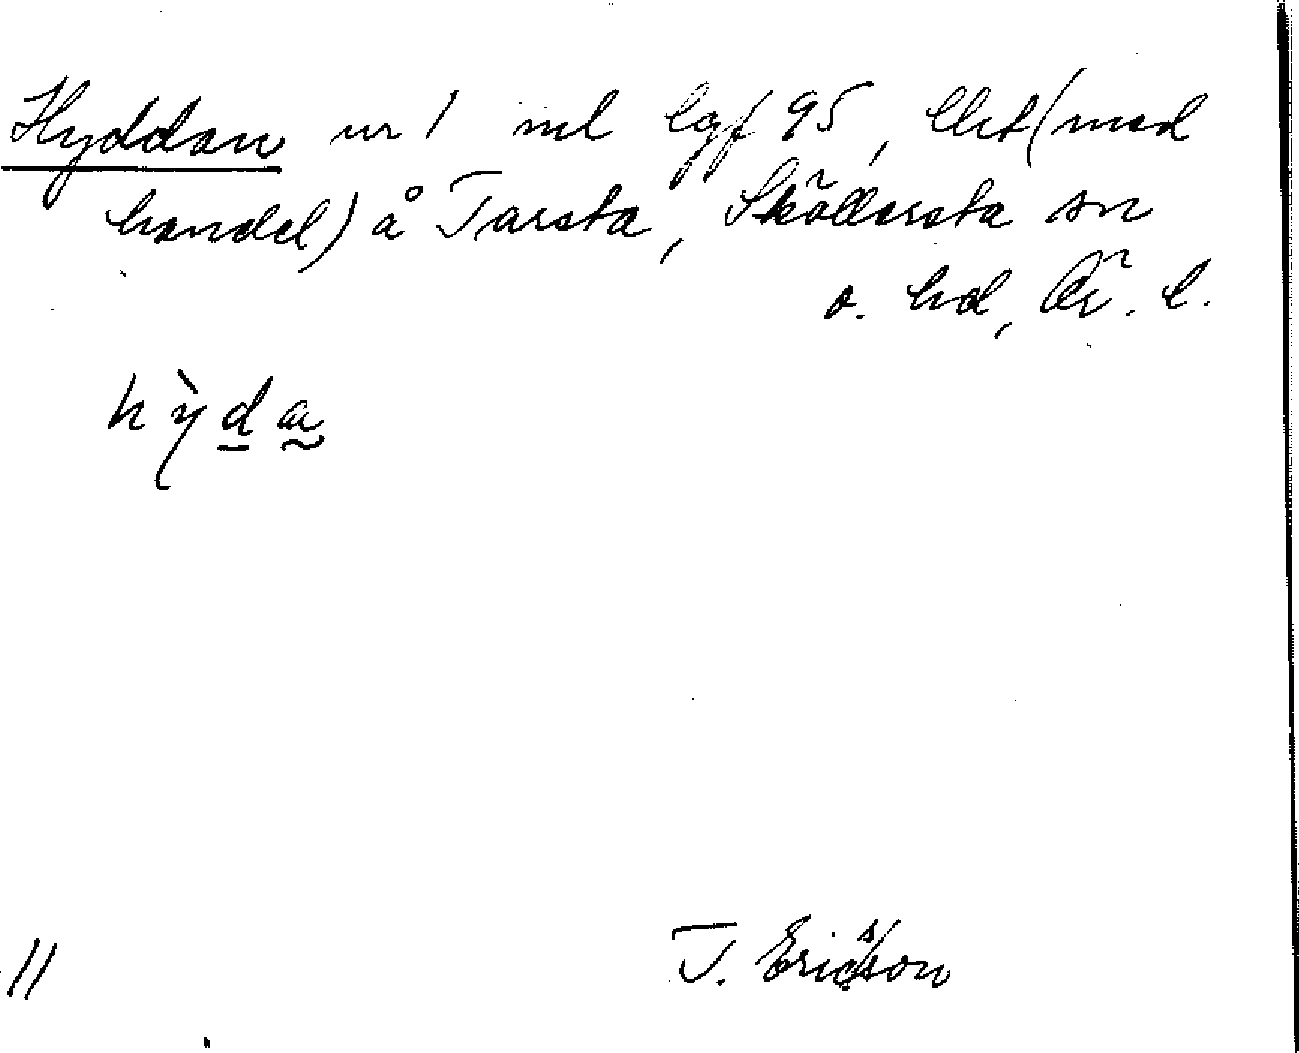 Hyddan nr 1 inl lgf 95, lht (med
handel) å Tarsta, Sköllersta sn
o. hd, Ör. l.
hỳda
11
T. Ericsson